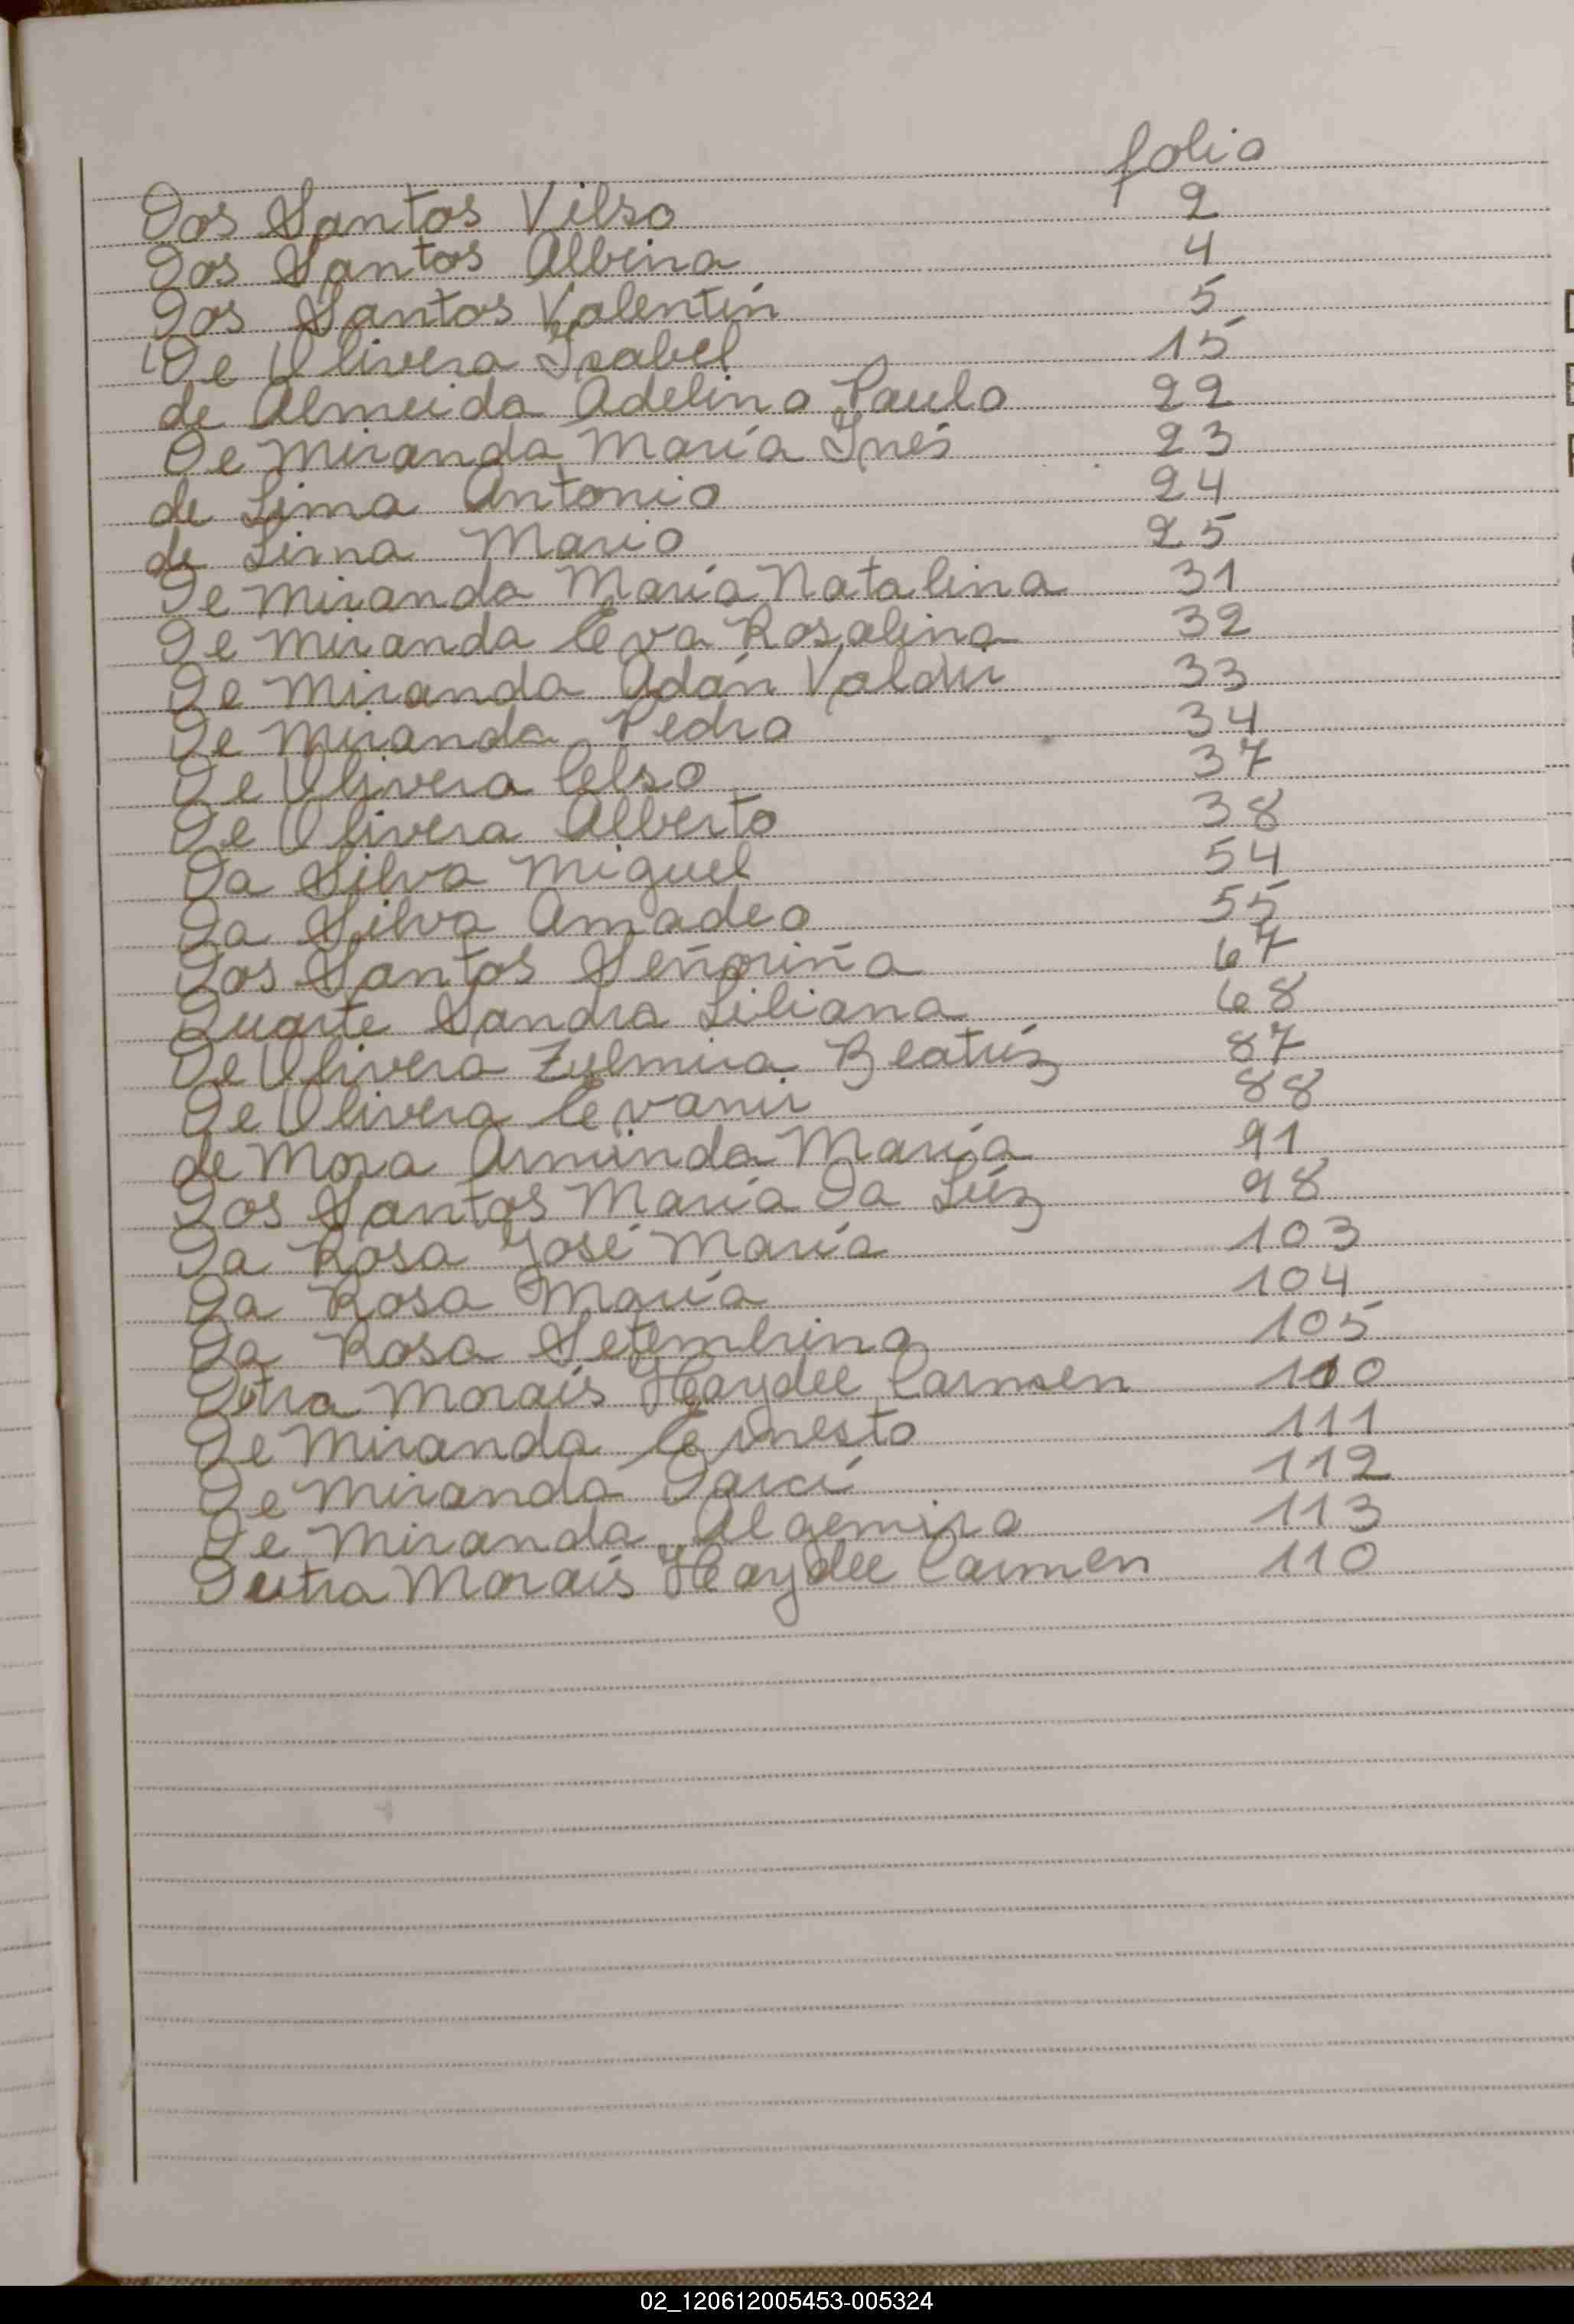 folio
Dos Santos Vilso 2
Dos Santos Albina 4
Dos Santos Valentín 5
De Olivera Isabel 15
de Almeida Adelina Paula 22
De Miranda María Inés 23
de Lima Antonio 24
de Lima Mario 25
De Miranda María Natalina 31
De Miranda Eva Rosalina 32
De Miranda Adán Valdir 33
De Miranda Pedro 34
De Olivera Celso 37
De Olivera Alberto 38
Da Silva Miguel 54
Da Silva Amadeo 55
Dos Santos Señoriña 67
Duarte Sandra Liliana 68
De Olivera Zulmira Beatríz 87
De Olivera Evanir 88
de Mora Arminda María 91
Dos Santos María Da Lúz 98
Da Rosa José María 103
Da Rosa María 104
Da Rosa Setembrina 105
Dutra Morais Haydee Carmen 110
De Miranda Ernesto 111
De Miranda Darcí 112
De Miranda Algemiro 113
Dutra Morais Haydee Carmen 110
02_120612005453-005324